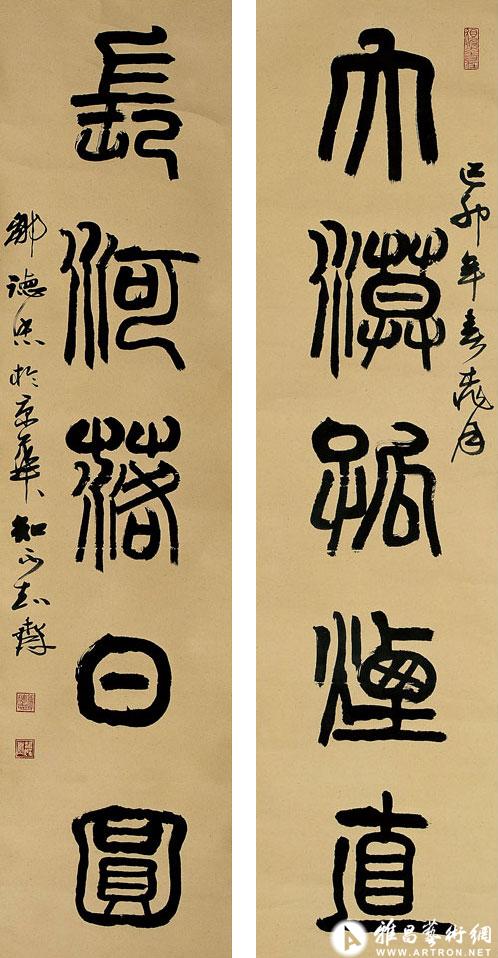 己卯年春月
大漠孤煙直
長河落日圓
鄒德忠於京華知不齋
雅昌藝術網
WWW.ARTRON.NET